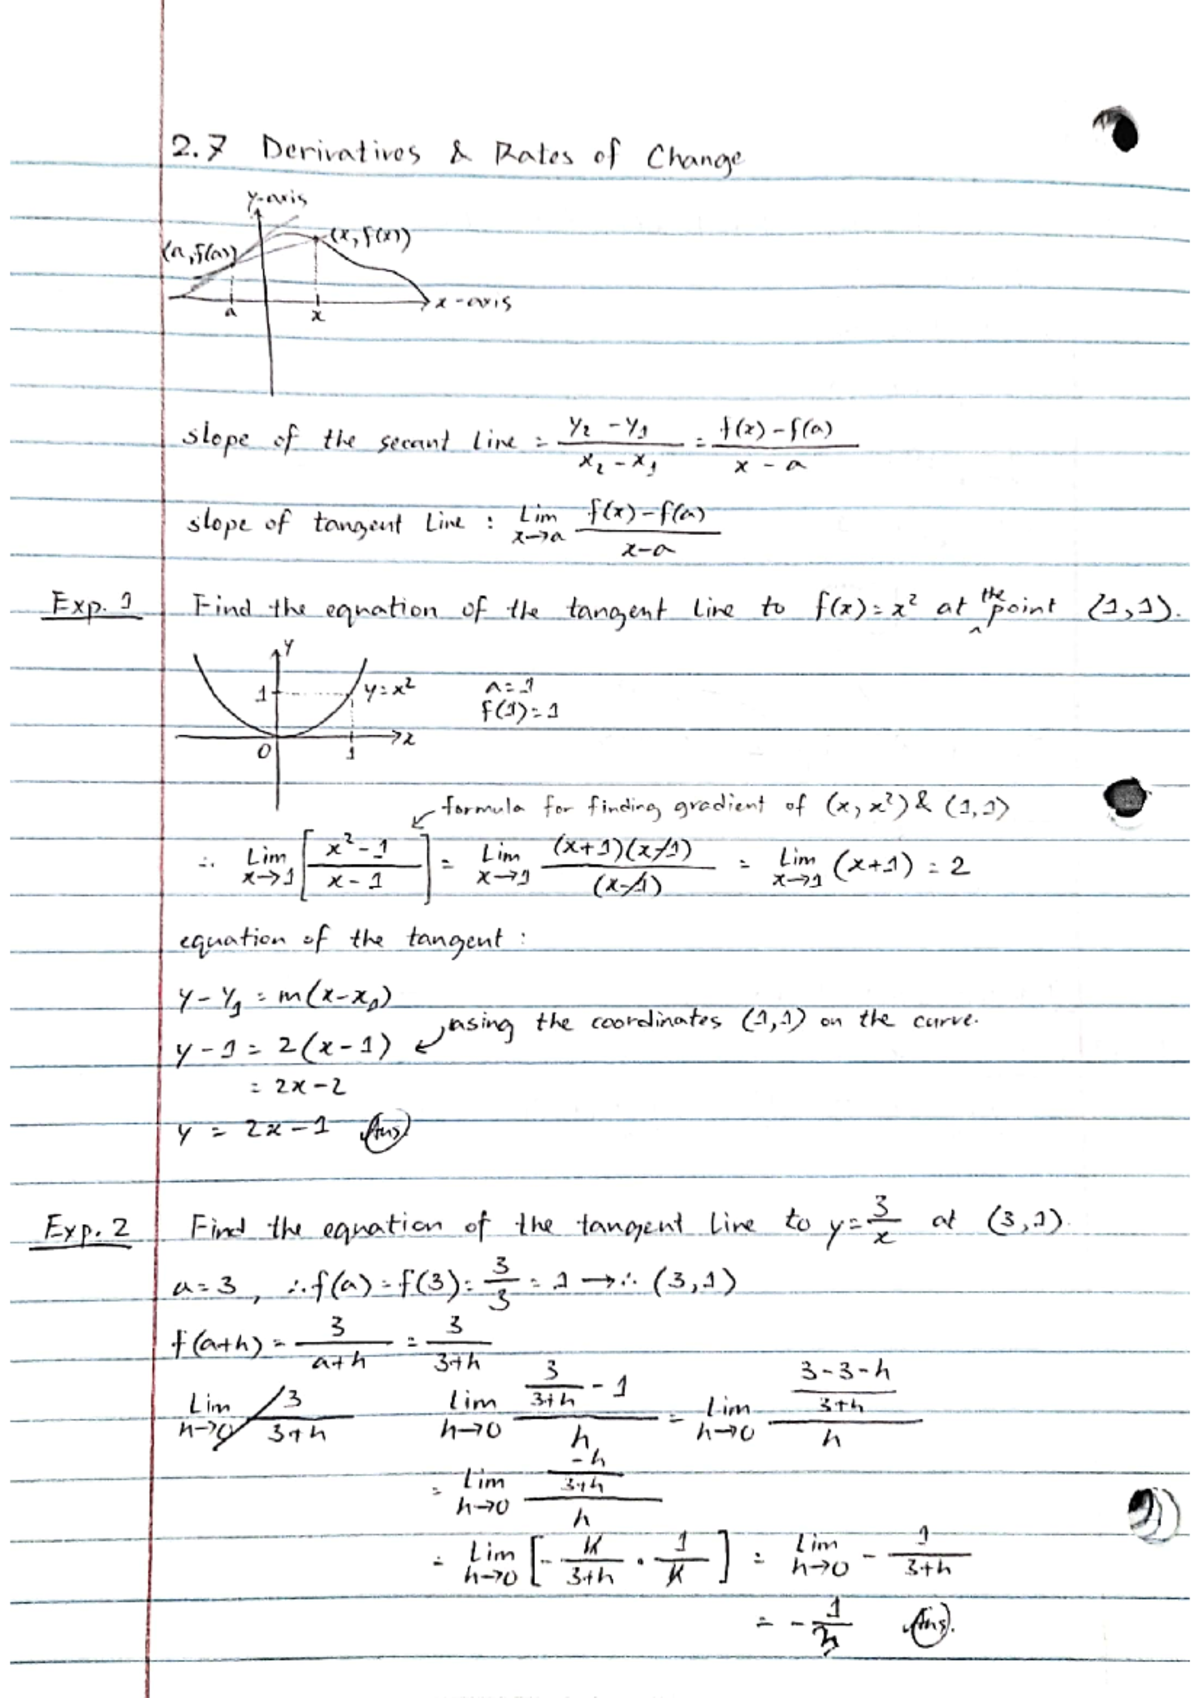 2.7 Derivatives & Rates of Change
y-axis
(a, f(a))
(x, f(x))
a
x
x-axis
slope of the secant line = y₂ - y₁ / x₂ - x₁ = f(x) - f(a) / x - a
slope of tangent line : Lim x→a f(x) - f(a) / x - a
Exp. 1 Find the equation of the tangent line to f(x) = x² at the point (1,1).
y
1
y = x²
x
0
1
a = 1
f(1) = 1
formula for finding gradient of (x, x²) & (1,1)
∴ Lim x→1 [x² - 1 / x - 1] = Lim x→1 (x+1)(x-1) / (x-1) = Lim x→1 (x+1) = 2
equation of the tangent :
y - y₁ = m(x - x₁)
using the coordinates (1,1) on the curve.
y - 1 = 2(x - 1)
= 2x - 2
y = 2x - 1 Ans.
Exp. 2 Find the equation of the tangent line to y = 3/x at (3,1).
a = 3, ∴ f(a) = f(3) = 3/3 = 1 → ∴ (3,1)
f(a+h) = 3 / a+h = 3 / 3+h
Lim h→0 3 / 3+h
Lim h→0 (3 / 3+h - 1) / h = Lim h→0 (3-3-h / 3+h) / h
= Lim h→0 (-h / 3+h) / h
= Lim h→0 [- h / 3+h · 1 / h] = Lim h→0 - 1 / 3+h
= - 1/3 Ans.